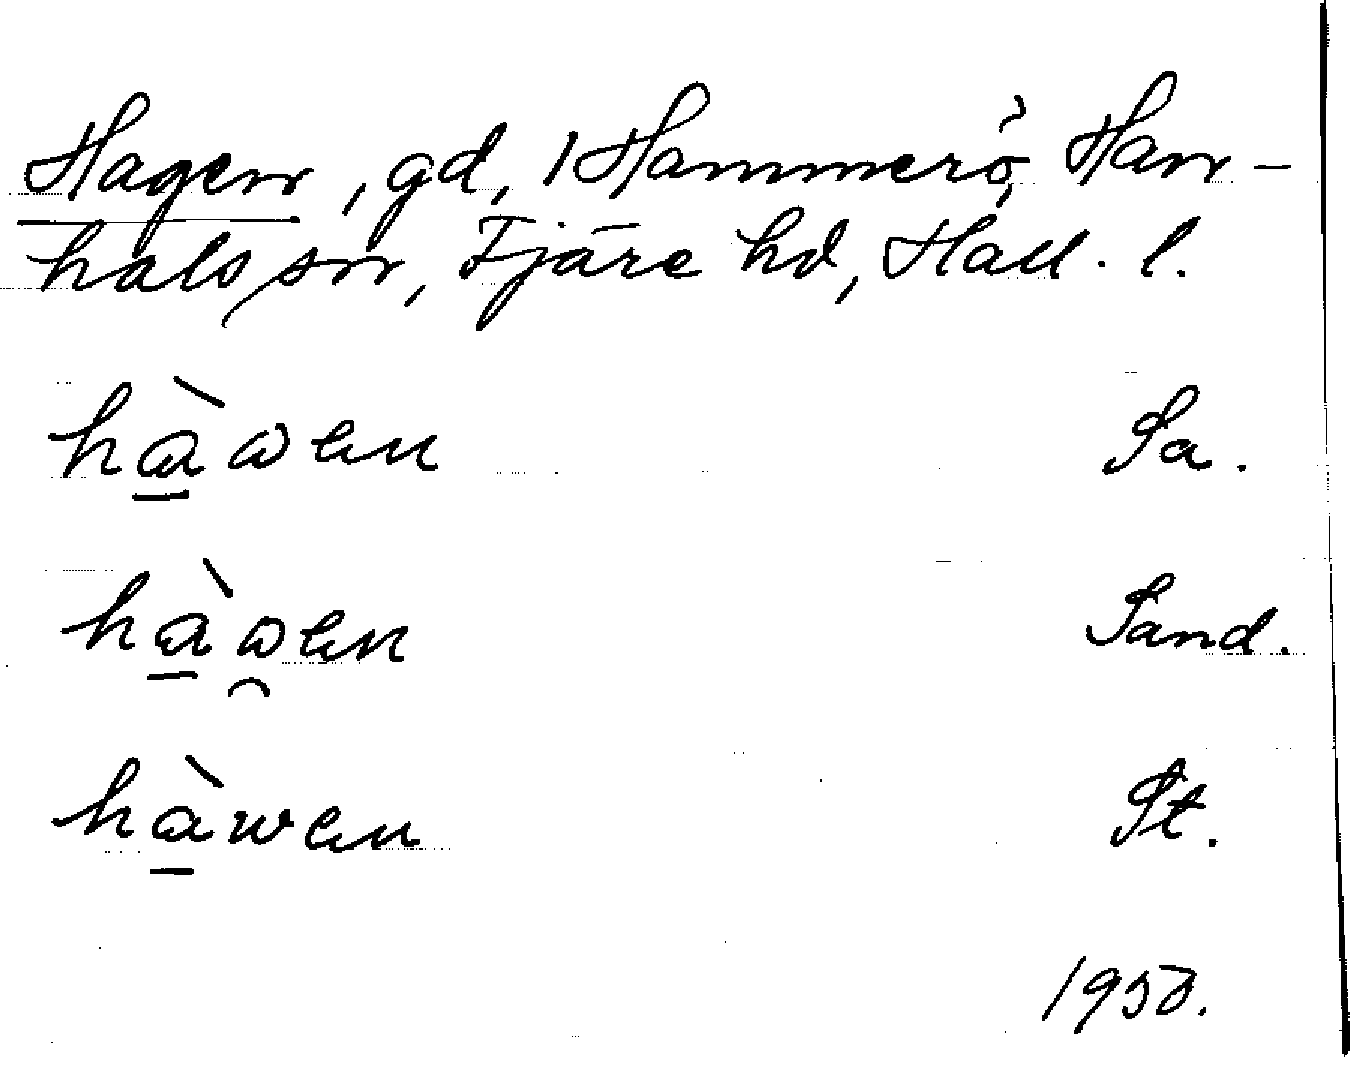 Hagen, gd, 1 Hammerö, Han-
hals sn, Fjäre hd, Hall. l.
hàwen Sa.
hàwen Sand.
hàwen St.